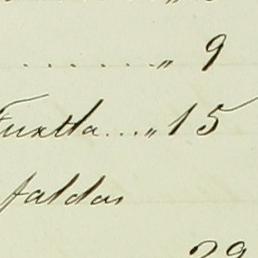 ........„ 9
Tuxtla...„ 15
faldas
29